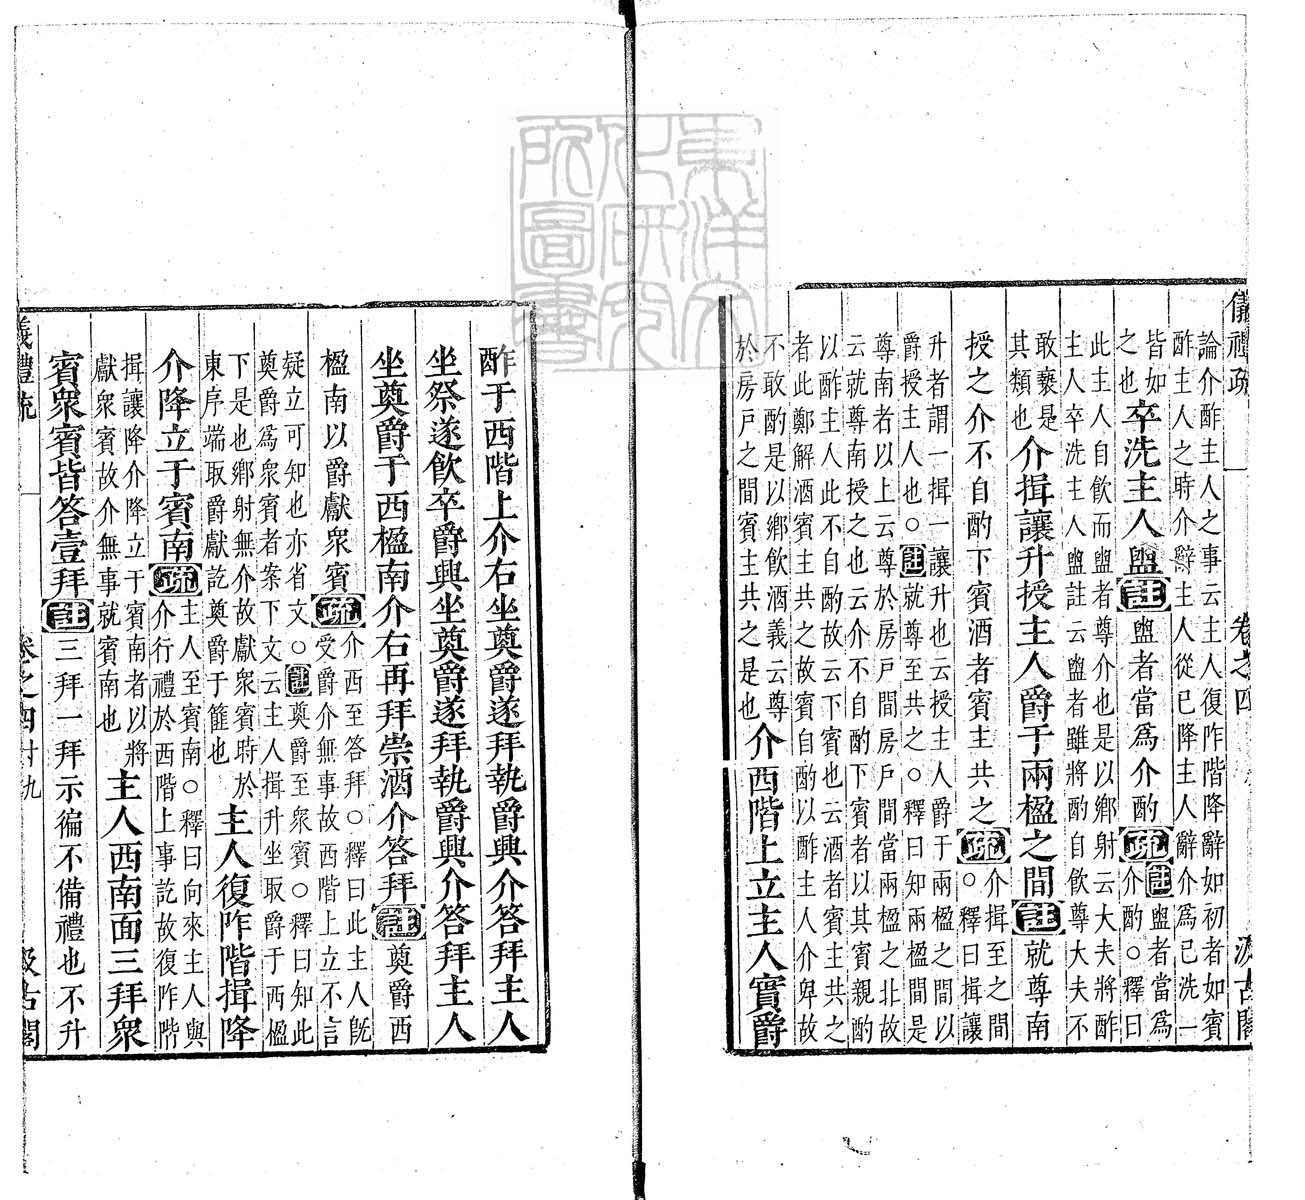 儀禮疏 卷之四 汲古閣
論介酢主人之事云主人復阼階降辭如初者如賓
酢主人之時介辭主人從已降主人辭介為已洗一
皆如
之也
卒洗主人盥
註
盥者當為介酌
疏
介酌○釋曰
註
盥者當為
此主人自飲而盥者尊介也是以鄉射云大夫將酢
主人卒洗主人盥註云盥者雖將酌自飲尊大夫不
敢褻是
其類也
介揖讓升授主人爵于兩楹之間
註
就尊南
授之介不自酌下賓酒者賓主共之
疏
介揖至之間
○釋曰揖讓
升者謂一揖一讓升也云授主人爵于兩楹之間以
爵授主人也○
註
就尊至共之○釋曰知兩楹間是
尊南者以上云尊於房戶間房戶間當兩楹之北故
云就尊南授之也云介不自酌下賓者以其賓親酌
以酢主人此不自酌故云下賓也云酒者賓主共之
者此鄭解酒賓主共之故賓自酌以酢主人介卑故
不敢酌是以鄉飲酒義云尊
於房戶之間賓主共之是也
介西階上立主人實爵
酢于西階上介右坐奠爵遂拜執爵興介答拜主人
坐祭遂飲卒爵興坐奠爵遂拜執爵興介答拜主人
坐奠爵于西楹南介右再拜崇酒介答拜
註
奠爵西
楹南以爵獻眾賓
疏
介西至答拜○釋曰此主人既
受爵介無事故西階上立不言
疑立可知也亦省文○
註
奠爵至眾賓○釋曰知此
奠爵為眾賓者案下文云主人揖升坐取爵于西楹
下是也鄉射無介故獻眾賓時於
東序端取爵獻訖奠爵于篚也
主人復阼階揖降
介降立于賓南
疏
主人至賓南○釋曰向來主人與
介行禮於西階上事訖故復阼階
揖讓降介降立于賓南者以將
獻眾賓故介無事就賓南也
主人西南面三拜眾
賓眾賓皆答壹拜
註
三拜一拜示徧不備禮也不升
儀禮疏 卷之四 汲古閣
東洋文
化研究
所圖書